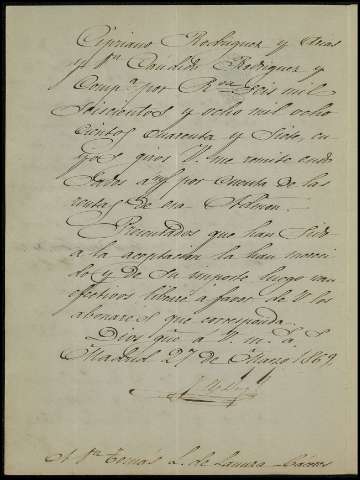 Cipriano Rodriguez y Arias
y Dn Candido Rodriguez y
Compª por Rvn Seis mil
Seiscientos y ocho mil ocho
cientos cuarenta y Siete, cu
yos giros V. me remite endo
sados a mf por cuenta de las
rentas de esa Admon.
Presentados que han sido
a la aceptacion la han mereci
do y de Su importe luego van
efectivos libraré a favor de V. los
abonares que corresponda.
Dios gue a V. m. a.
Madrid 27 de Marzo 1869.
A Dn Tomás L. de Lamura Cáceres